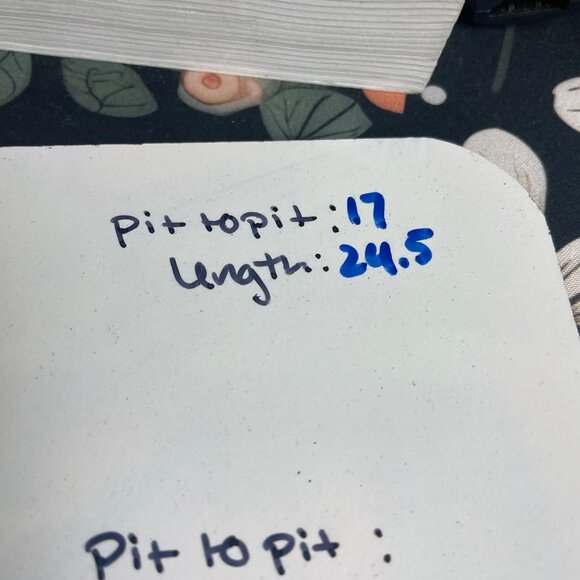 pit to pit: 17
length: 24.5
pit to pit: